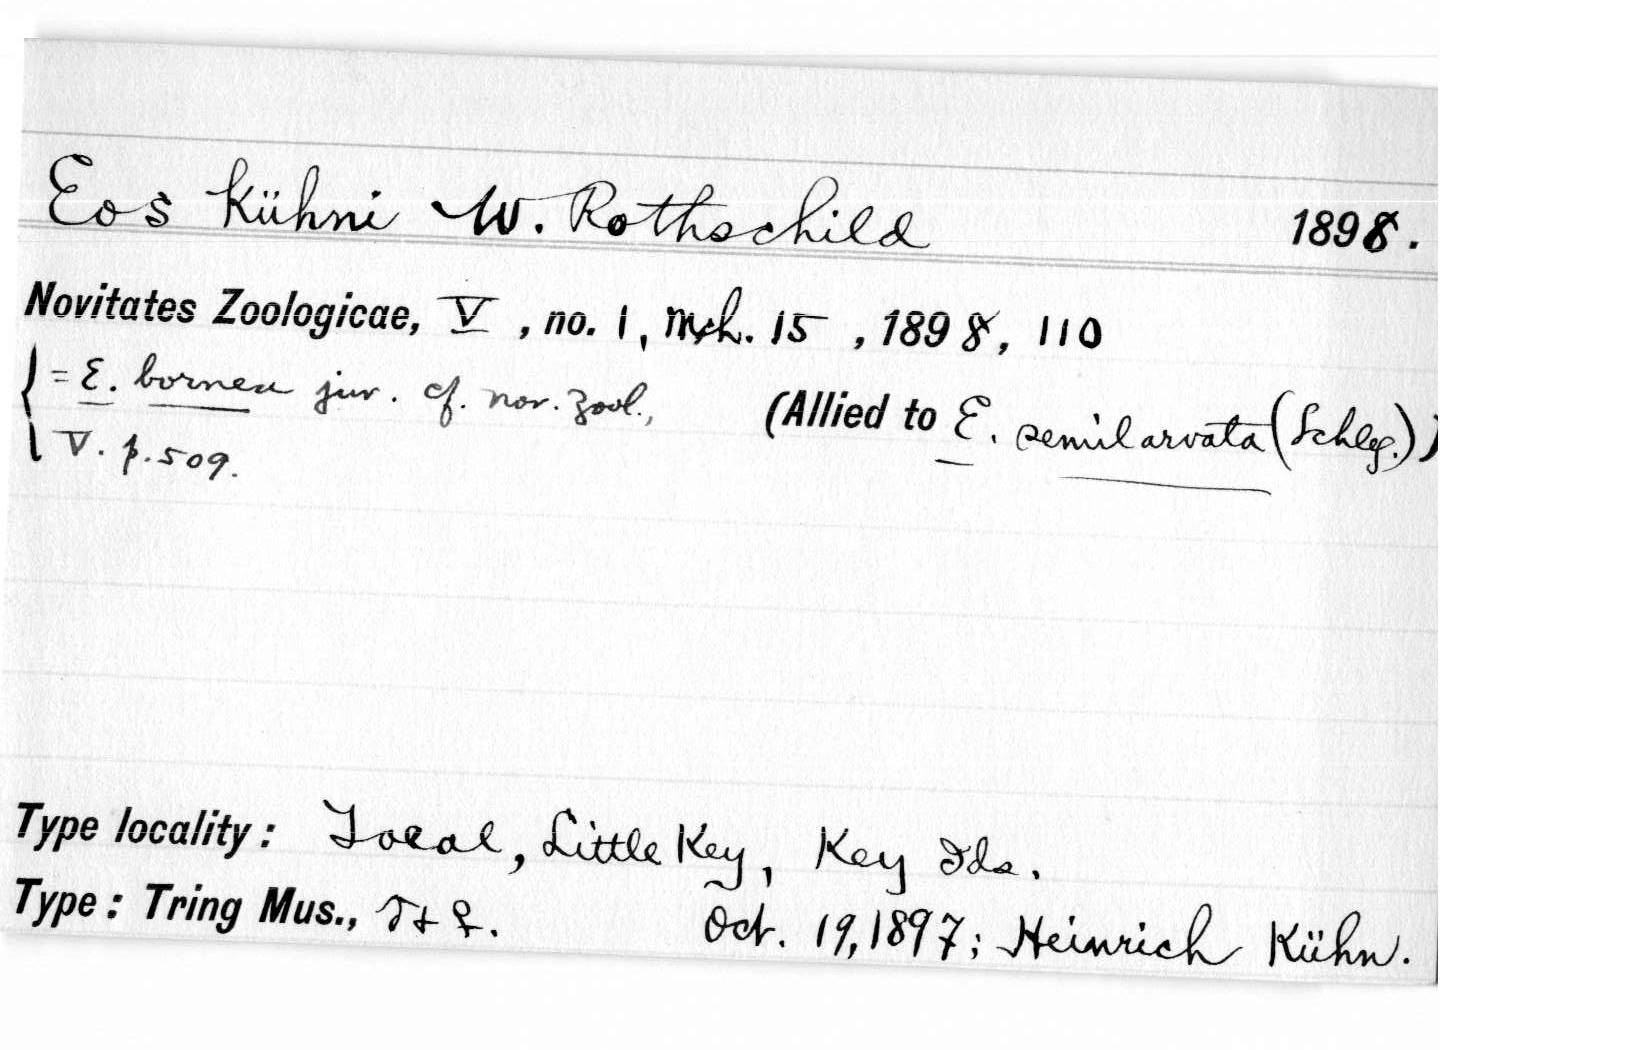 Eos Kühni W. Rothschild 1898.
Novitates Zoologicae, V, no. 1, Mch. 15, 1898, 110
= E. bornea juv. cf. Nov. Zool., (Allied to E. semilarvata (Schleg.))
V. p. 509.
Type locality: Toeal, Little Key, Key Ids.
Type: Tring Mus., ♀. Oct. 19, 1897; Heinrich Kühn.